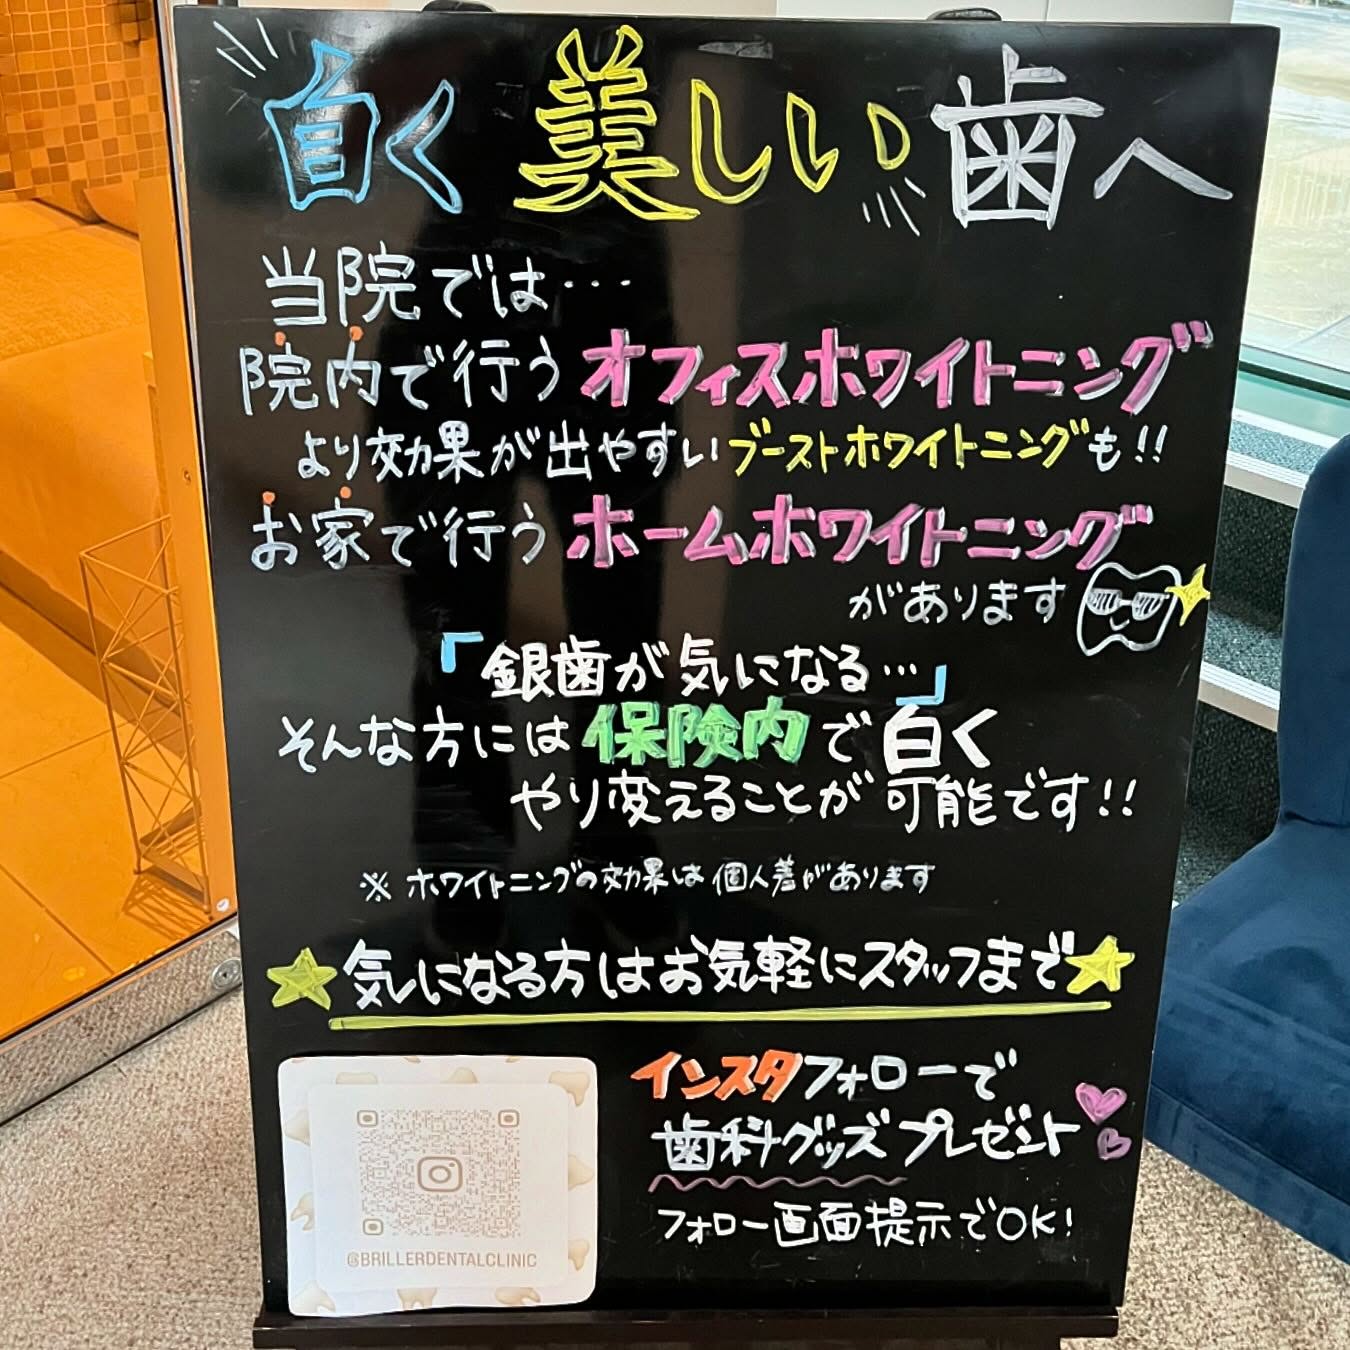 白く美しい歯へ
当院では…
院内で行うオフィスホワイトニング
より効果が出やすいブーストホワイトニングも!!
お家で行うホームホワイトニング
があります
「銀歯が気になる…」
そんな方には保険内で白く
やり変えることが可能です!!
※ホワイトニングの効果は個人差があります
★気になる方はお気軽にスタッフまで★
インスタフォローで
歯科グッズプレゼント
フォロー画面提示でOK!
@BRILLERDENTALCLINIC